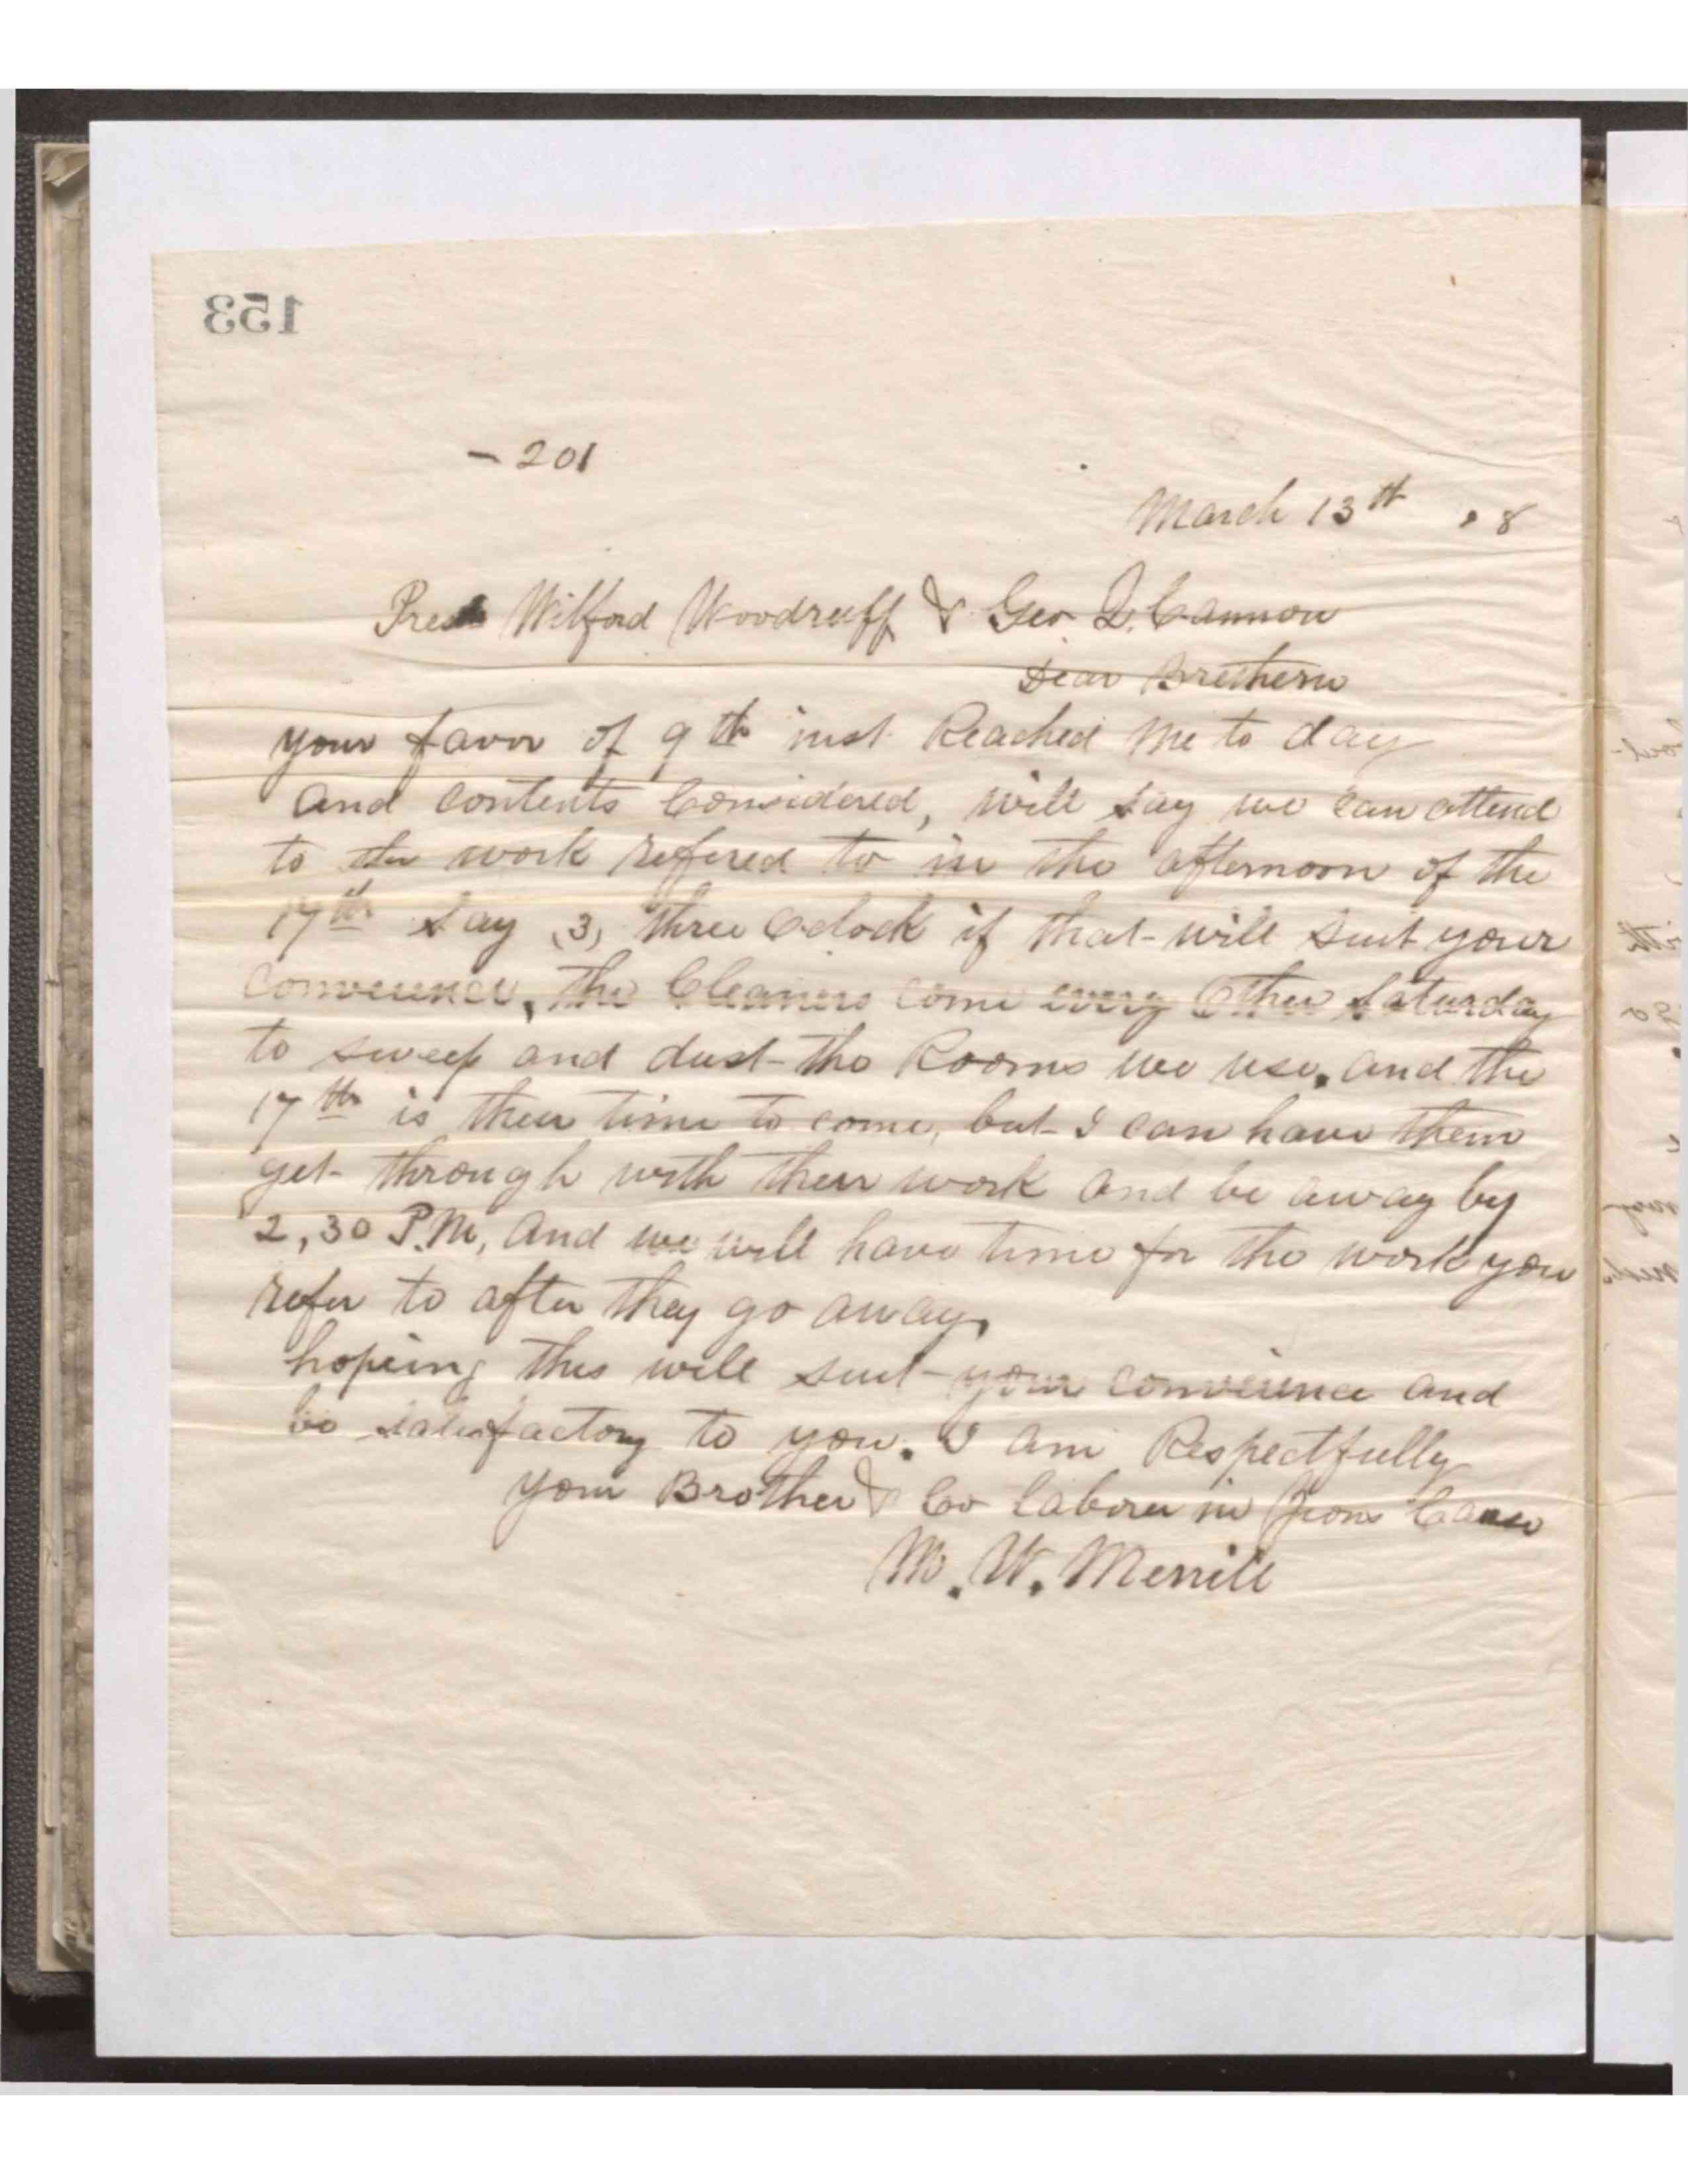 153
- 201
March 13th , 8
Pres Wilford Woodruff & Geo Q. Cannon
Dear Brethern
your favor of 9th inst Reached me to day
and contents Considered, will say we can attend
to the work refered to in the afternoon of the
17th say (3) three Oclock if that will suit your
convenience, the Cleaners come every Other Saturday
to sweep and dust the Rooms we use, and the
17th is their time to come, but I can have them
get through with their work and be away by
2,30 P.M, and we will have time for the work you
refer to after they go away.
hopeing this will suit your convenience and
be satisfactory to you. I am Respectfully
your Brother & Co laborer in Zions Cause
M. W. Merrill